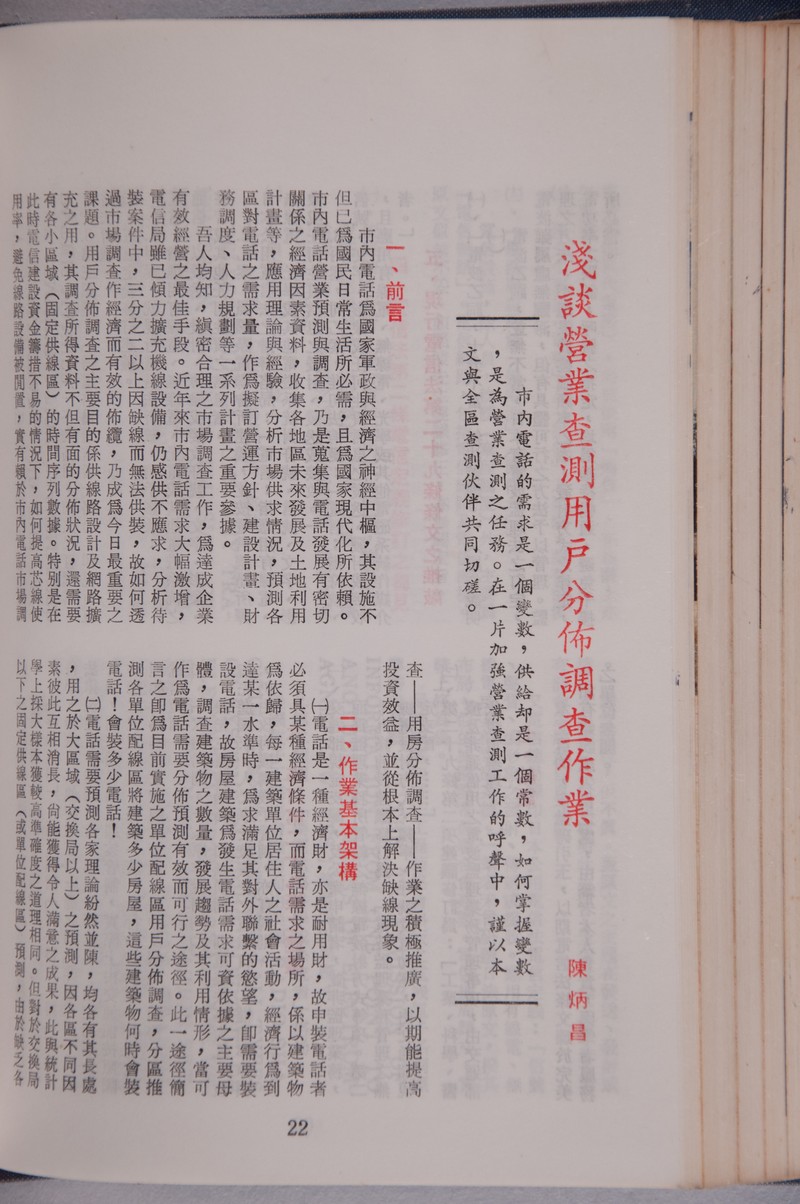 淺談營業查測用戶分佈調查作業
陳炳昌
市內電話的需求是一個變數，供給却是一個常數，如何掌握變數
，是為營業查測之任務。在一片加強營業查測工作的呼聲中，謹以本
文與全區查測伙伴共同切磋。
一、前言
市內電話爲國家軍政與經濟之神經中樞，其設施不
但已爲國民日常生活所必需，且爲國家現代化所依賴。
市內電話營業預測與調查，乃是蒐集與電話發展有密切
關係之經濟因素資料，收集各地區未來發展及土地利用
計畫等，應用理論與經驗，分析市場供求情況，預測各
區對電話之需求量，作爲擬訂營運方針、建設計畫、財
務調度、人力規劃等一系列計畫之重要參據。
吾人均知，縝密合理之市場調查工作，爲達成企業
有效經營之最佳手段。近年來市內電話需求大幅激增，
電信局雖已傾力擴充機線設備，仍感供不應求，分析待
裝案件中，三分之二以上因缺線而無法供裝，故如何透
過市場調查作經濟而有效的佈纜，乃成爲今日最重要之
課題。用戶分佈調查之主要目的係供線路設計及網路擴
充之用，其調查所得資料不但有面的分佈狀況，還需要
有各小區域（固定供線區）的時間序列數據。特別是在
此時電信建設資金籌措不易的情況下，如何提高芯線使
用率，避免線路設備被閒置，實有賴於市內電話市場調
查——用房分佈調查——作業之積極推廣，以期能提高
投資效益，並從根本上解決缺線現象。
二、作業基本架構
㈠電話是一種經濟財，亦是耐用財，故申裝電話者
必須具某種經濟條件，而電話需求之場所，係以建築物
爲依歸，每一建築單位居住人之社會活動，經濟行爲到
達某一水準時，爲求滿足其對外聯繫的慾望，卽需要裝
設電話，故房屋建築爲發生電話需求可資依據之主要母
體，調查建築物之數量，發展趨勢及其利用情形，當可
作爲電話需要分佈預測有效而可行之途徑。此一途徑簡
言之卽爲目前實施之單位配線區用戶分佈調查，分區推
測各單位配線區將建築多少房屋，這些建築物何時會裝
電話！會裝多少電話！
㈡電話需要預測各家理論紛然並陳，均各有其長處
，用之於大區域（交換局以上）之預測，因各區不同因
素彼此互相消長，尙能獲得令人滿意之成果，此與統計
學上採大樣本獲較高準確度之道理相同。但對於交換局
以下之固定供線區（或單位配線區）預測，由於缺乏各
22